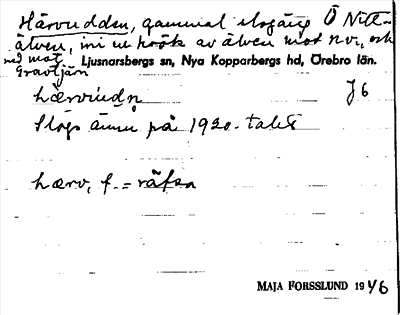 Härvudden, gammal slogäng Ö Nitt-
älven, ini en krök av älven mot nv., och
ned mot Ljusnarsbergs sn, Nya Kopparbergs hd, Örebro län.
Gravtjärn
hærvùdn J6
Slogs ännu på 1920-talet
hærv, f. = räfsa
MAJA FORSSLUND 1946